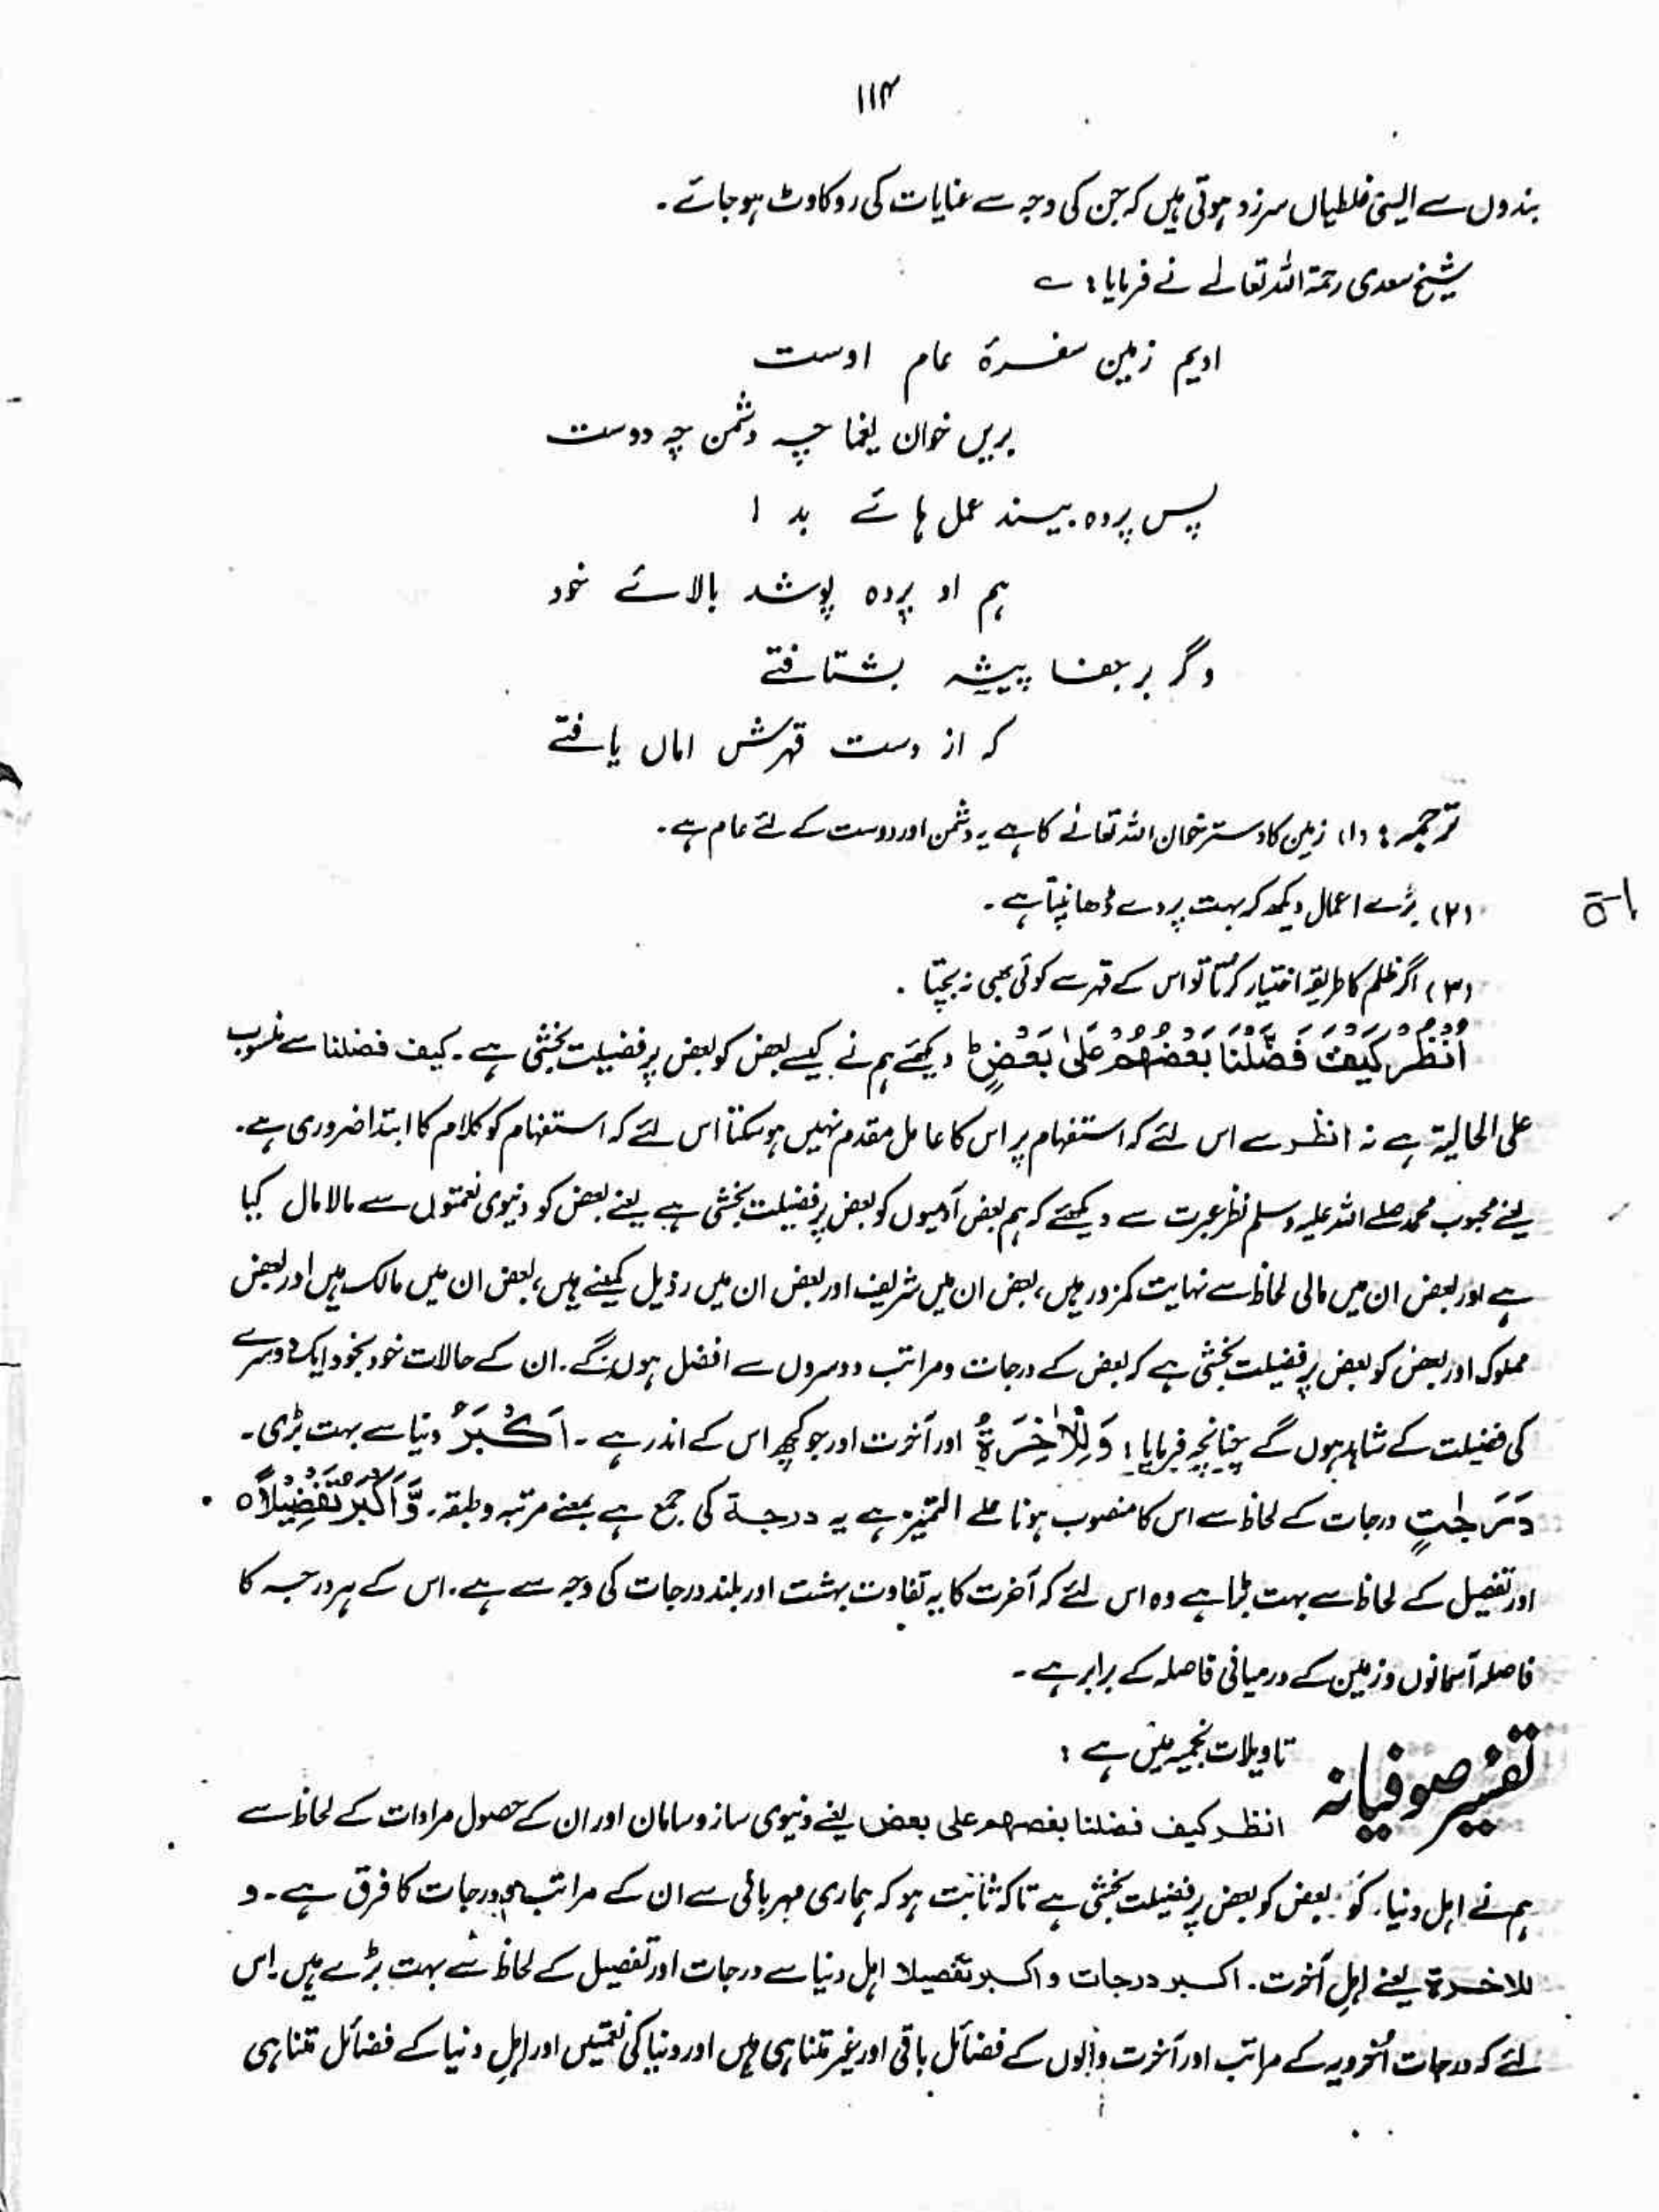 ۱۱۴
بندوں سے ایسی غلطیاں سرزد ہوتی ہیں کہ جن کی وجہ سے عنایات کی روکاوٹ ہو جائے۔
شیخ سعدی رحمۃ اللہ تعالےٰ نے فرمایا : ؎
ادیم زمین سفرۂ عام اوست
بریں خوان یغما چہ دشمن چہ دوست
پس پردہ بیند عمل ہائے بد !
ہم او پردہ پوشد بالائے خود
وگر بر جفا پیشہ بشتافتے
کہ از دست قہرش اماں یافتے
ترجمہ : (۱) زمین کا دسترخوان اللہ تعالےٰ کا ہے یہ دشمن اور دوست کے لئے عام ہے۔
(۲) بُرے اعمال دیکھ کر بہت پردے ڈھانپتا ہے۔
(۳) اگر ظلم کا طریقہ اختیار کرتا تو اس کے قہر سے کوئی بھی نہ بچتا ۔
اُنْظُرْ كَیْفَ فَضَّلْنَا بَعْضَهُمْ عَلٰی بَعْضٍ ؕ دیکھئے ہم نے کیسے بعض کو بعض پر فضیلت بخشی ہے۔ کیف فضلنا سے منسوب
علی الحالیۃ ہے نہ انظر سے اس لئے کہ استفہام پر اس کا عامل مقدم نہیں ہو سکتا اس لئے کہ استفہام کو کلام کا ابتدا ضروری ہے۔
یعنے محبوب محمد صلے اللہ علیہ وسلم نظر عبرت سے دیکھئے کہ ہم بعض آدمیوں کو بعض پر فضیلت بخشی ہے یعنے بعض کو دنیوی نعمتوں سے مالا مال کیا
ہے اور بعض ان میں مالی لحاظ سے نہایت کمزور ہیں، بعض ان میں شریف اور بعض ان میں رذیل کمینے ہیں، بعض ان میں مالک ہیں اور بعض
مملوک اور بعض کو بعض پر فضیلت بخشی ہے کہ بعض کے درجات و مراتب دوسروں سے افضل ہوں گے۔ ان کے حالات خود بخود ایک دوسرے
کی فضیلت کے شاہد ہوں گے چنانچہ فرمایا : وَلَلْاٰخِرَةُ اور آخرت اور جو کچھ اس کے اندر ہے۔ اَكْبَرُ دنیا سے بہت بڑی۔
دَرَجٰتٍ درجات کے لحاظ سے اس کا منصوب ہونا علے التمیز ہے یہ درجۃ کی جمع ہے بمعنے مرتبہ و طبقہ۔ وَّاَكْبَرُ تَفْضِیْلًا ۰
اور تفصیل کے لحاظ سے بہت بڑا ہے وہ اس لئے کہ آخرت کا یہ تفاوت بہشت اور بلند درجات کی وجہ سے ہے۔ اس کے ہر درجہ کا
فاصلہ آسمانوں و زمین کے درمیانی فاصلہ کے برابر ہے۔
تفسیر صوفیانہ تاویلات نجمیہ میں ہے :
انظر کیف فضلنا بعضھم علی بعض یعنے دنیوی ساز و سامان اور ان کے حصول مرادات کے لحاظ سے
ہم نے اہل دنیا کو بعض کو بعض پر فضیلت بخشی ہے تاکہ ثابت ہو کہ ہماری مہربانی سے ان کے مراتب و درجات کا فرق ہے۔ و
للاخرۃ یعنے اہل آخرت۔ اکبر درجات و اکبر تفصیلا اہل دنیا سے درجات اور تفصیل کے لحاظ سے بہت بڑے ہیں۔ اس
لئے کہ درجات اُخرویہ کے مراتب اور آخرت والوں کے فضائل باقی اور غیر متناہی ہیں اور دنیا کی نعمتیں اور اہل دنیا کے فضائل متناہی